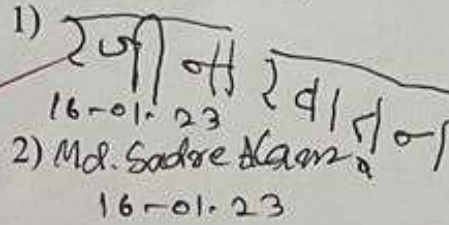 1) रजीना खातुन
16-01-23
2) Md. Sadre Alam
16-01-23